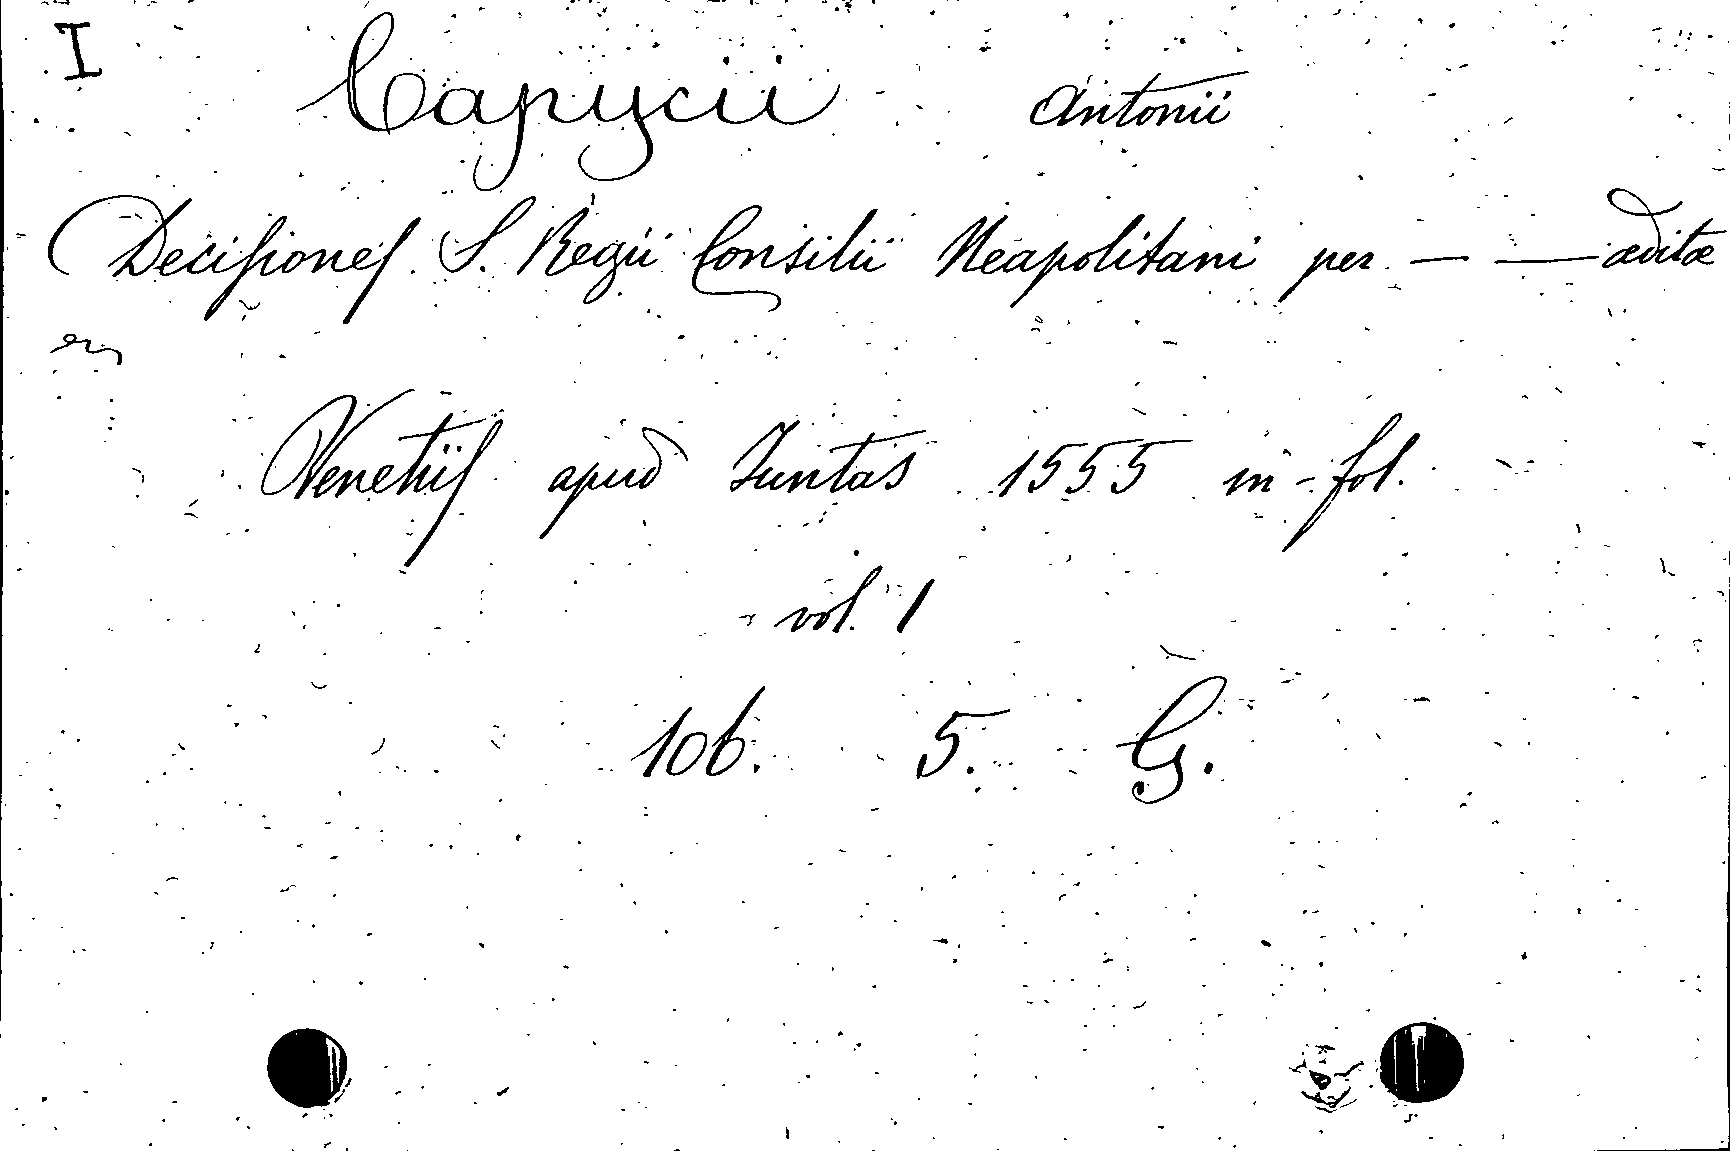 I
Capycii Antonii
Decisiones S. Regii Consilii Neapolitani per — — æditæ
Venetiis apud Juntas 1555 in-fol.
vol. 1
106. 5. G.